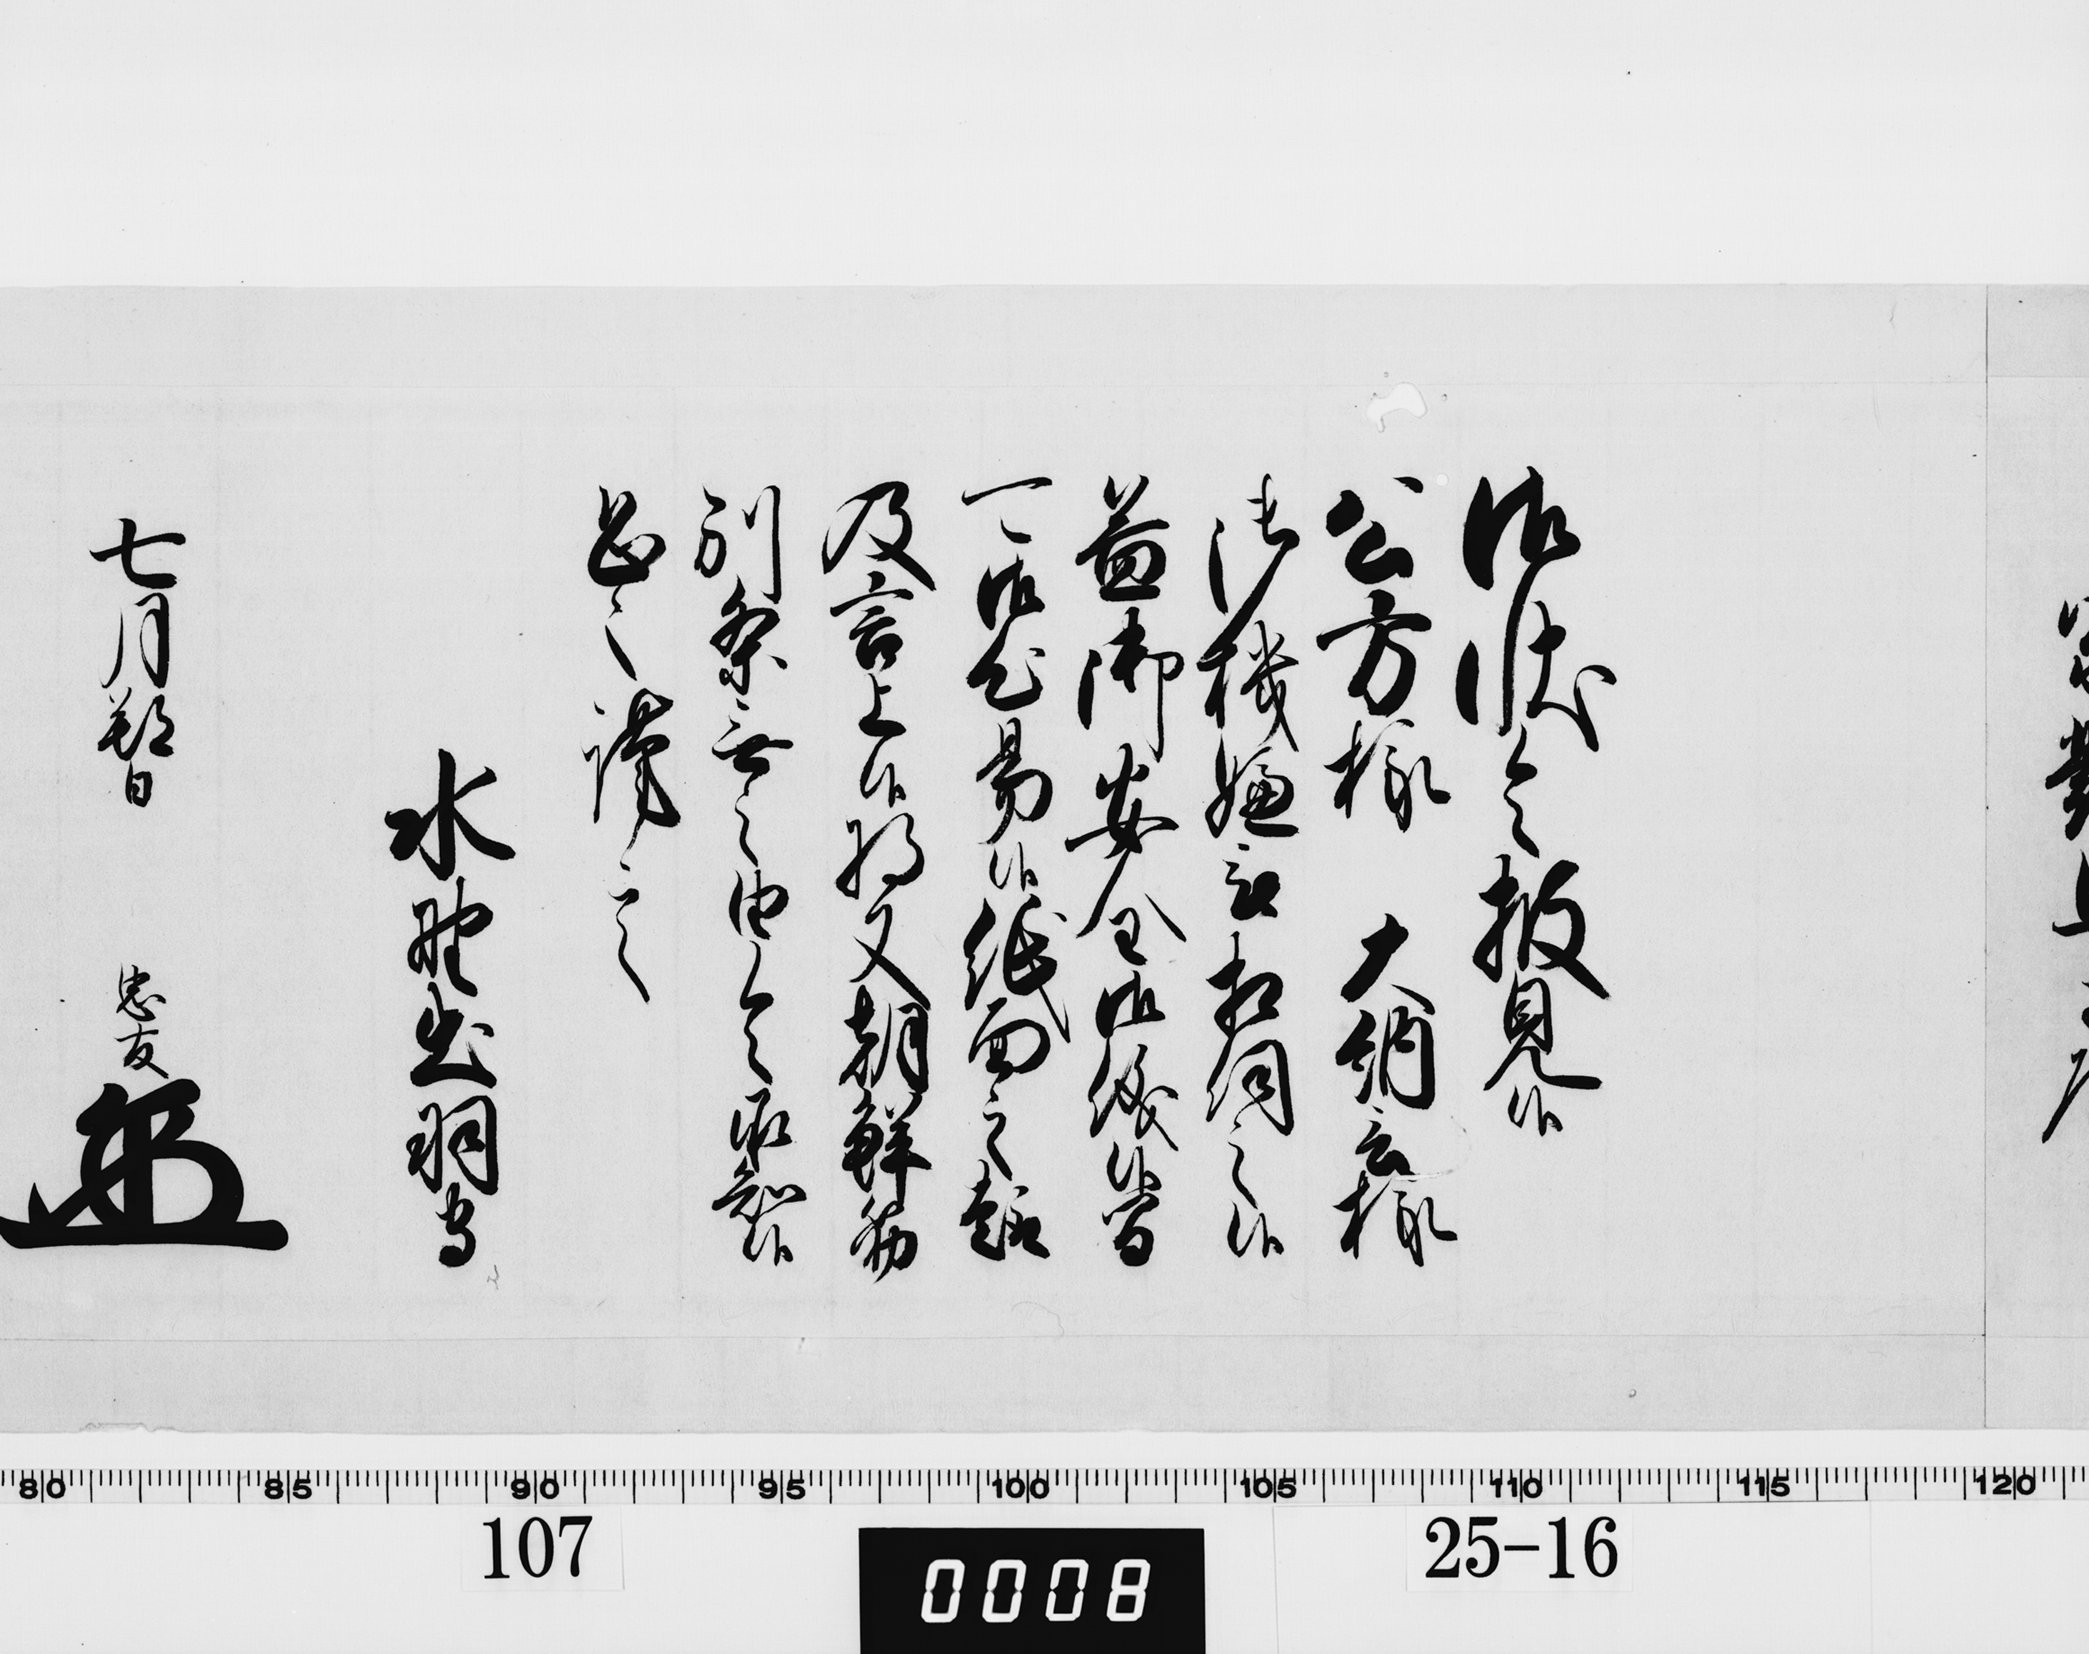 御状令披見候
公方様 大納言様
御機嫌被相伺之候
益御安全御儀候間
可御心易候紙面之趣
及言上候将又朝鮮筋
別条無之由令承知候
恐々謹言
水野出羽守
七月朔日
忠友
80 85 90 95 100 105 110 115 120
107
0008
25-16